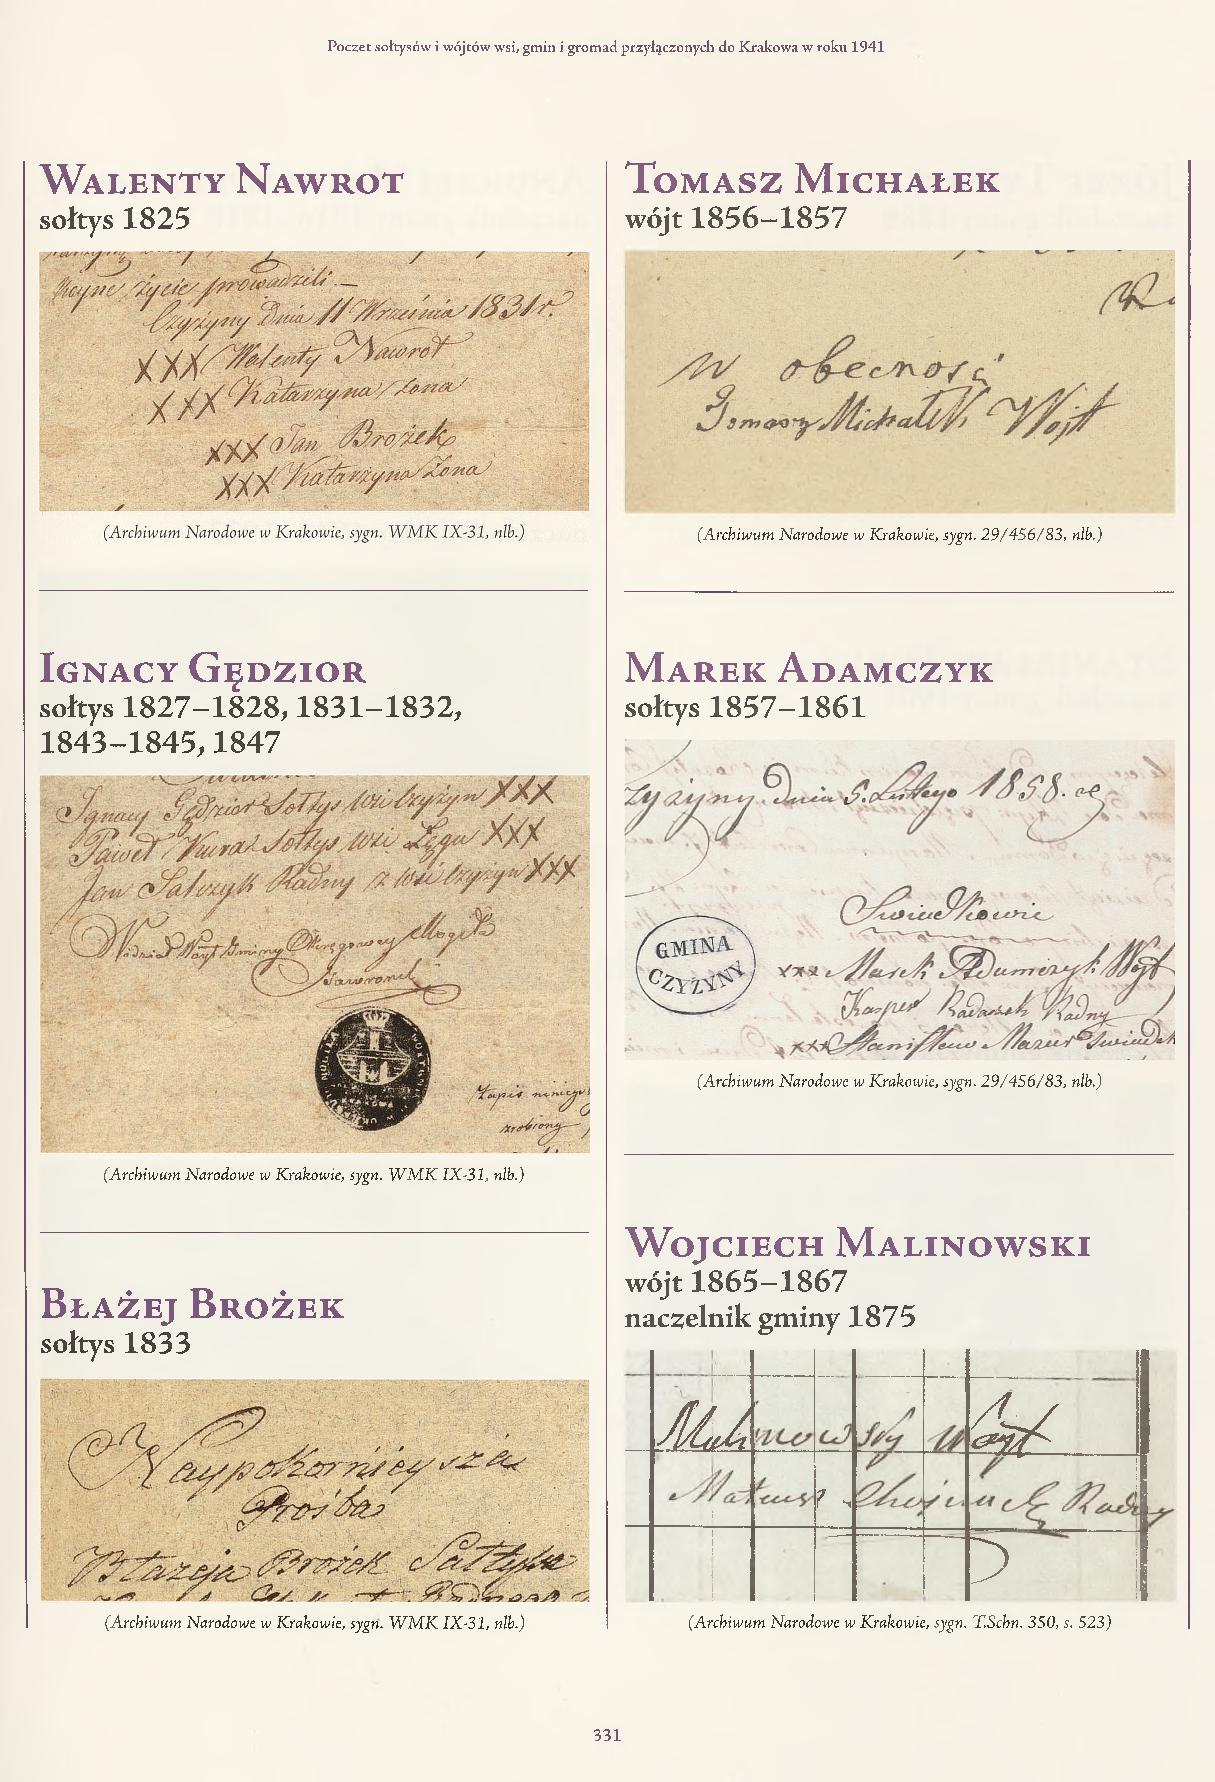 Poczet sołtysów i wójtów wsi, gmin i gromad przyłączonych do Krakowa w roku 1941
Walenty Nawrot
sołtys 1825
życie prowadzili. —
Czyżyny dnia 11 Września 1831 r.
XXX Walenty Nawrot
XXX Katarzyna żona
XXX Jan Brożek
XXX Katarzyna żona
(Archiwum Narodowe w Krakowie, sygn. WMK IX-31, nlb.)
Ignacy Gędzior
sołtys 1827–1828, 1831–1832,
1843–1845, 1847
Ignacy Gędzior Sołtys wsi Czyżyn XXX
Paweł Kura Sołtys wsi Łęgu XXX
Jan Salczyk Radny z wsi Czyżyn XXX
Widział Wóyt Gminy Okręgowey Mogiła
zapis
zrobiony
(Archiwum Narodowe w Krakowie, sygn. WMK IX-31, nlb.)
Błażej Brożek
sołtys 1833
Naypokornieysza
Prośba
Błażeja Brożek Sołtysa
(Archiwum Narodowe w Krakowie, sygn. WMK IX-31, nlb.)
Tomasz Michałek
wójt 1856–1857
W obecność
Tomasz Michałek Wójt
(Archiwum Narodowe w Krakowie, sygn. 29/456/83, nlb.)
Marek Adamczyk
sołtys 1857–1861
zyżyny dnia 5. Lutego 1858.
Swiadkowie
GMINA
CZYŻYNY
xxx Marek Adamczyk Wójt
Kasper Radny
xxx Stanisław Mazur Swiadek
(Archiwum Narodowe w Krakowie, sygn. 29/456/83, nlb.)
Wojciech Malinowski
wójt 1865–1867
naczelnik gminy 1875
Malinowsky Wóyt
Mateusz Radny
(Archiwum Narodowe w Krakowie, sygn. T.Schn. 350, s. 523)
331